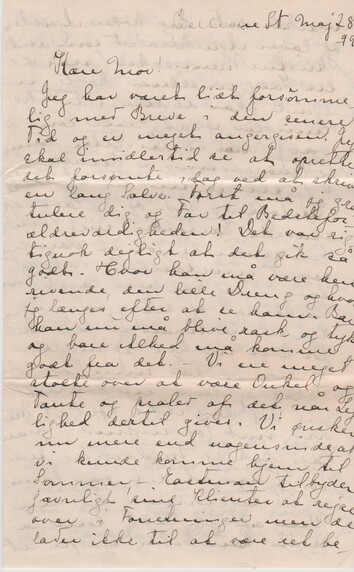 St. Maj 28
99
Kære Mor.
Jeg har været lidt forsömme
lig med Breve i den senere
Tid og er meget angergiven. Jeg
skal imidlertid se at oprette
det forsömte idag ved at skri
en lang Salve. Först må jeg gra
tulere dig og Far til Bedstefor
ældreværdigheden! Det var rig
tignok dejligt at det gik så
godt. Hvor han må være hen
rivende, den lille Dreng og hvor
jeg længes efter at se ham. Bare
han nu må blive rask og tyk
og bare Alhed må komme
godt fra det. — Vi ere meget
stolte over at være Onkel og
Tante og praler af det når Lej
lighed dertil gives. Vi önsker
nu mere end nogensinde at
vi kunde komme hjem til
Sommer — Eastman tilbyder
jævnligt sine Klienter at rejse
over i Forretninger, men de
lader ikke til at være ret be-